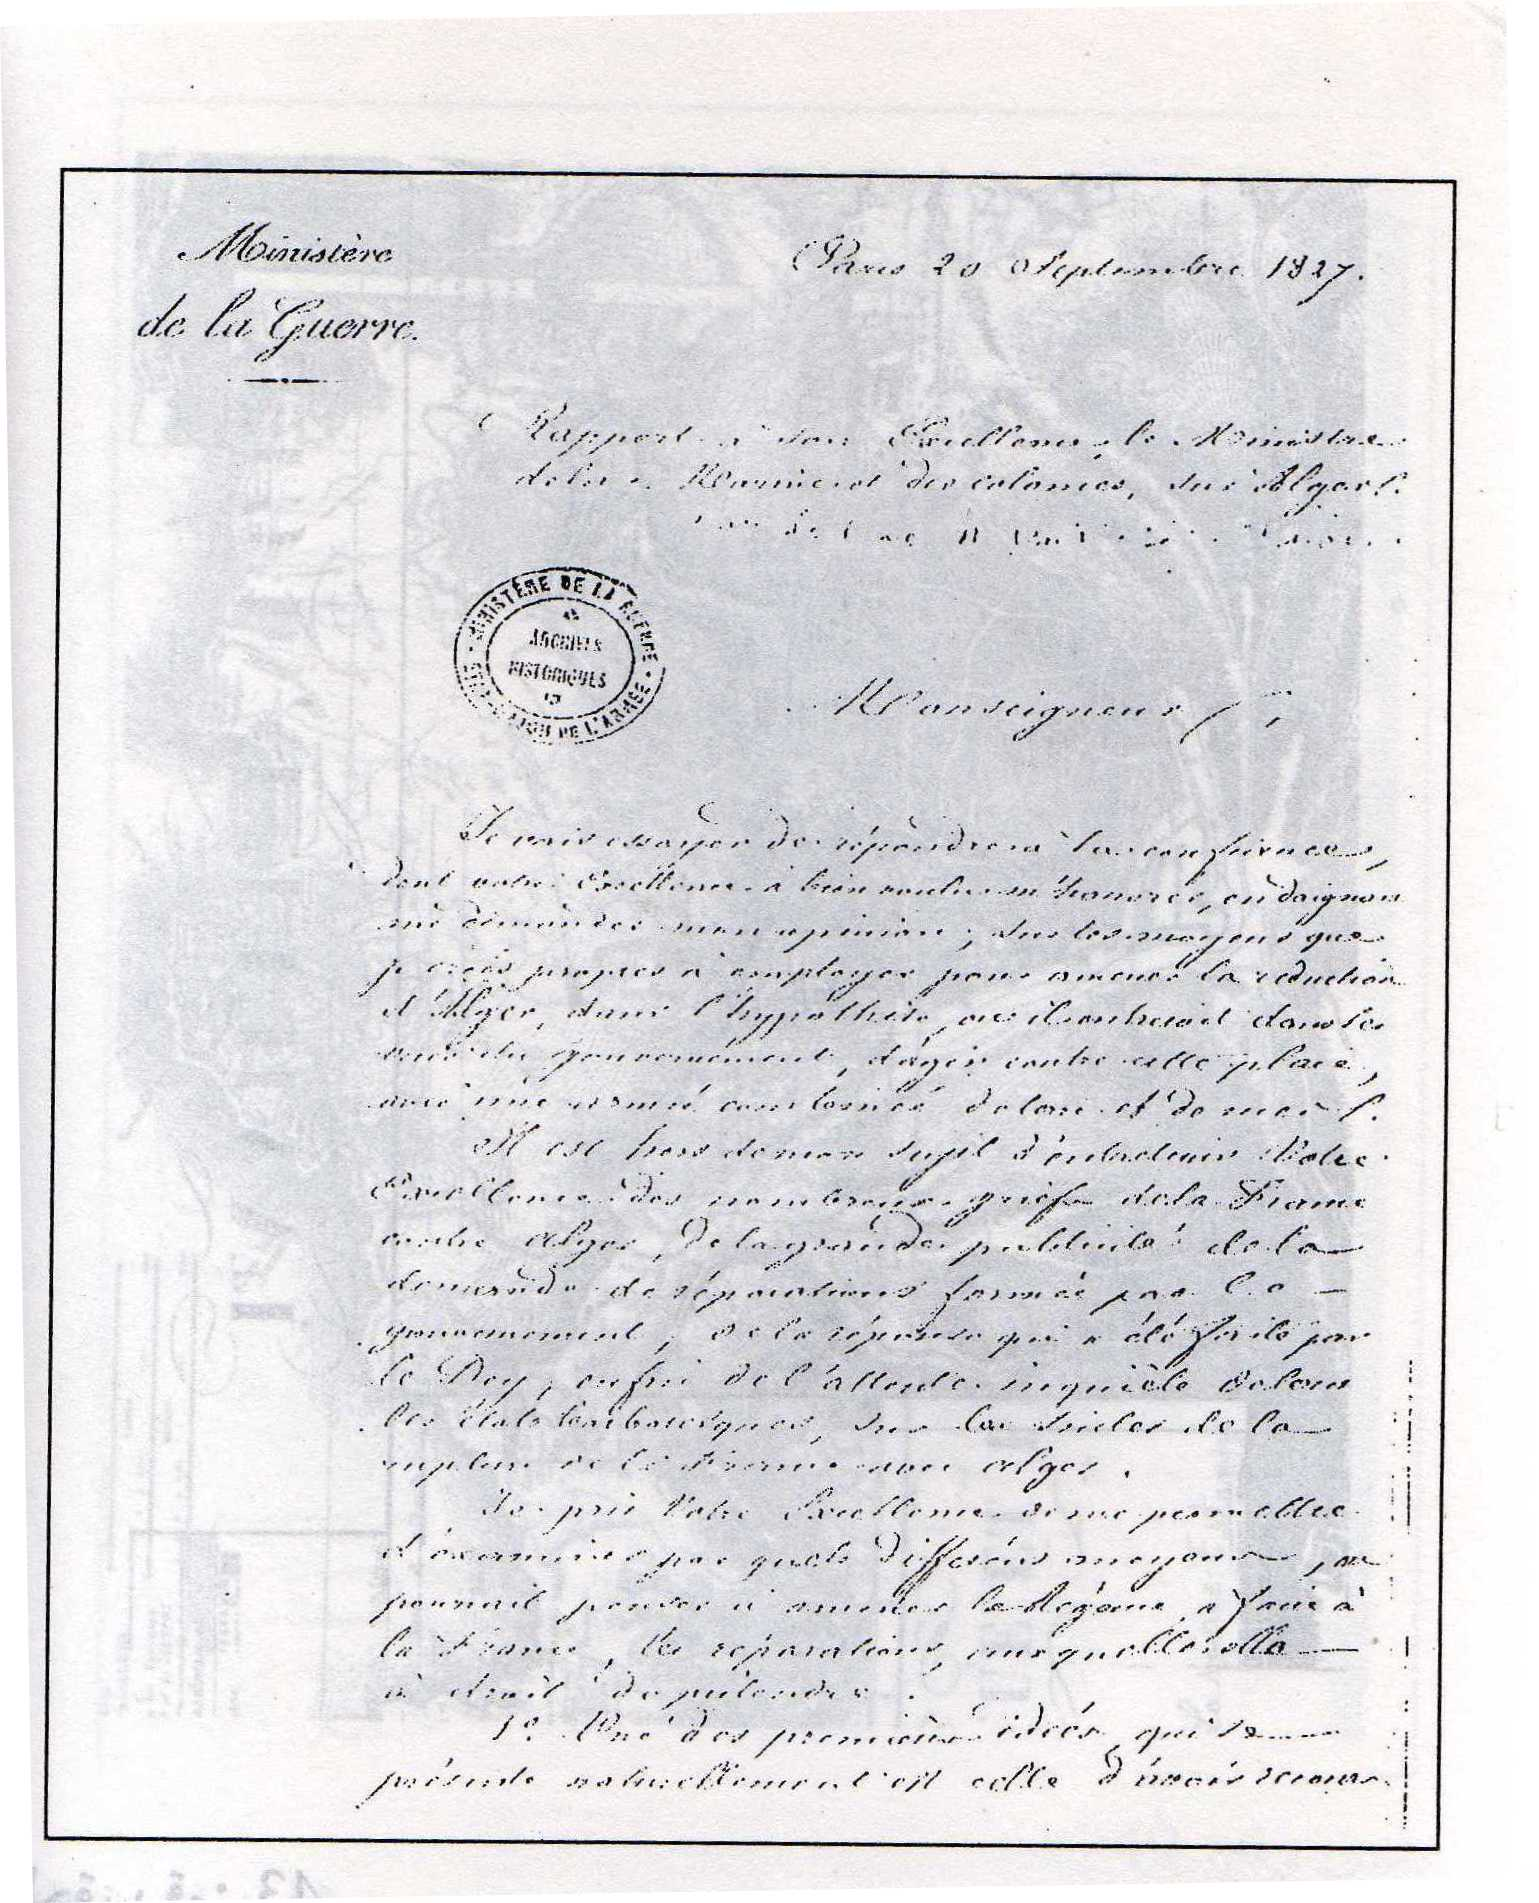 Ministère
de la Guerre.
Paris 20 Septembre 1827.
Rapport à Son Excellence, le Ministre
de la Marine et des colonies, sur Alger.
MINISTÈRE DE LA GUERRE
ARCHIVES
HISTORIQUES
DE L'ARMÉE
Monseigneur,
Je vais essayer de répondre à la confiance,
dont votre Excellence à bien voulu m'honorer, en daignant
me demander mon opinion, sur les moyens que
je crois propres à employer pour amener la reduction
d'Alger, dans l'hypothèse, où il entrerait dans les
vues du gouvernement, d'agir contre cette place,
avec une armée combinée de terre et de mer.
Il est hors de mon sujet d'entretenir Votre
Excellence des nombreux griefs de la France
contre Alger, de la grande publicité de la
demande de réparations formée par le
gouvernement, de la réponse qui a été faite par
le Dey, enfin de l'attente inquiète de tous
les états barbaresques, sur les suites de la
rupture de la France avec Alger.
Je prie Votre Excellence de me permettre
d'examiner par quels différens moyens, on
pourrait penser à amener la Régence, a faire à
la France, les réparations, auxquelles elle
à droit de prétendre.
1º. Une des premières idées, qui se
présente naturellement est celle d'avoir recours